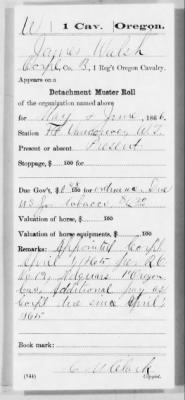 W | 1 Cav. | Oregon.
James Walsh
Corpl, Co. B, 1 Reg't Oregon Cavalry.
Appears on a
Detachment Muster Roll
of the organization named above
for May & June, 1866.
Station Ft Vancouver W.T.
Present or absent Present
Stoppage, $ 100 for
Due Gov't, $ 100 for ordnance
US for tobacco
Valuation of horse, $ 100
Valuation of horse equipments, $ 100
Remarks: Appointed Corpl
April 1/1865 per R.O.
No 12, Hdqrs 1" Oregon
Cav. Additional pay as
Corp'l due since April
1865
Book mark:
Clark
(344) Copyist.